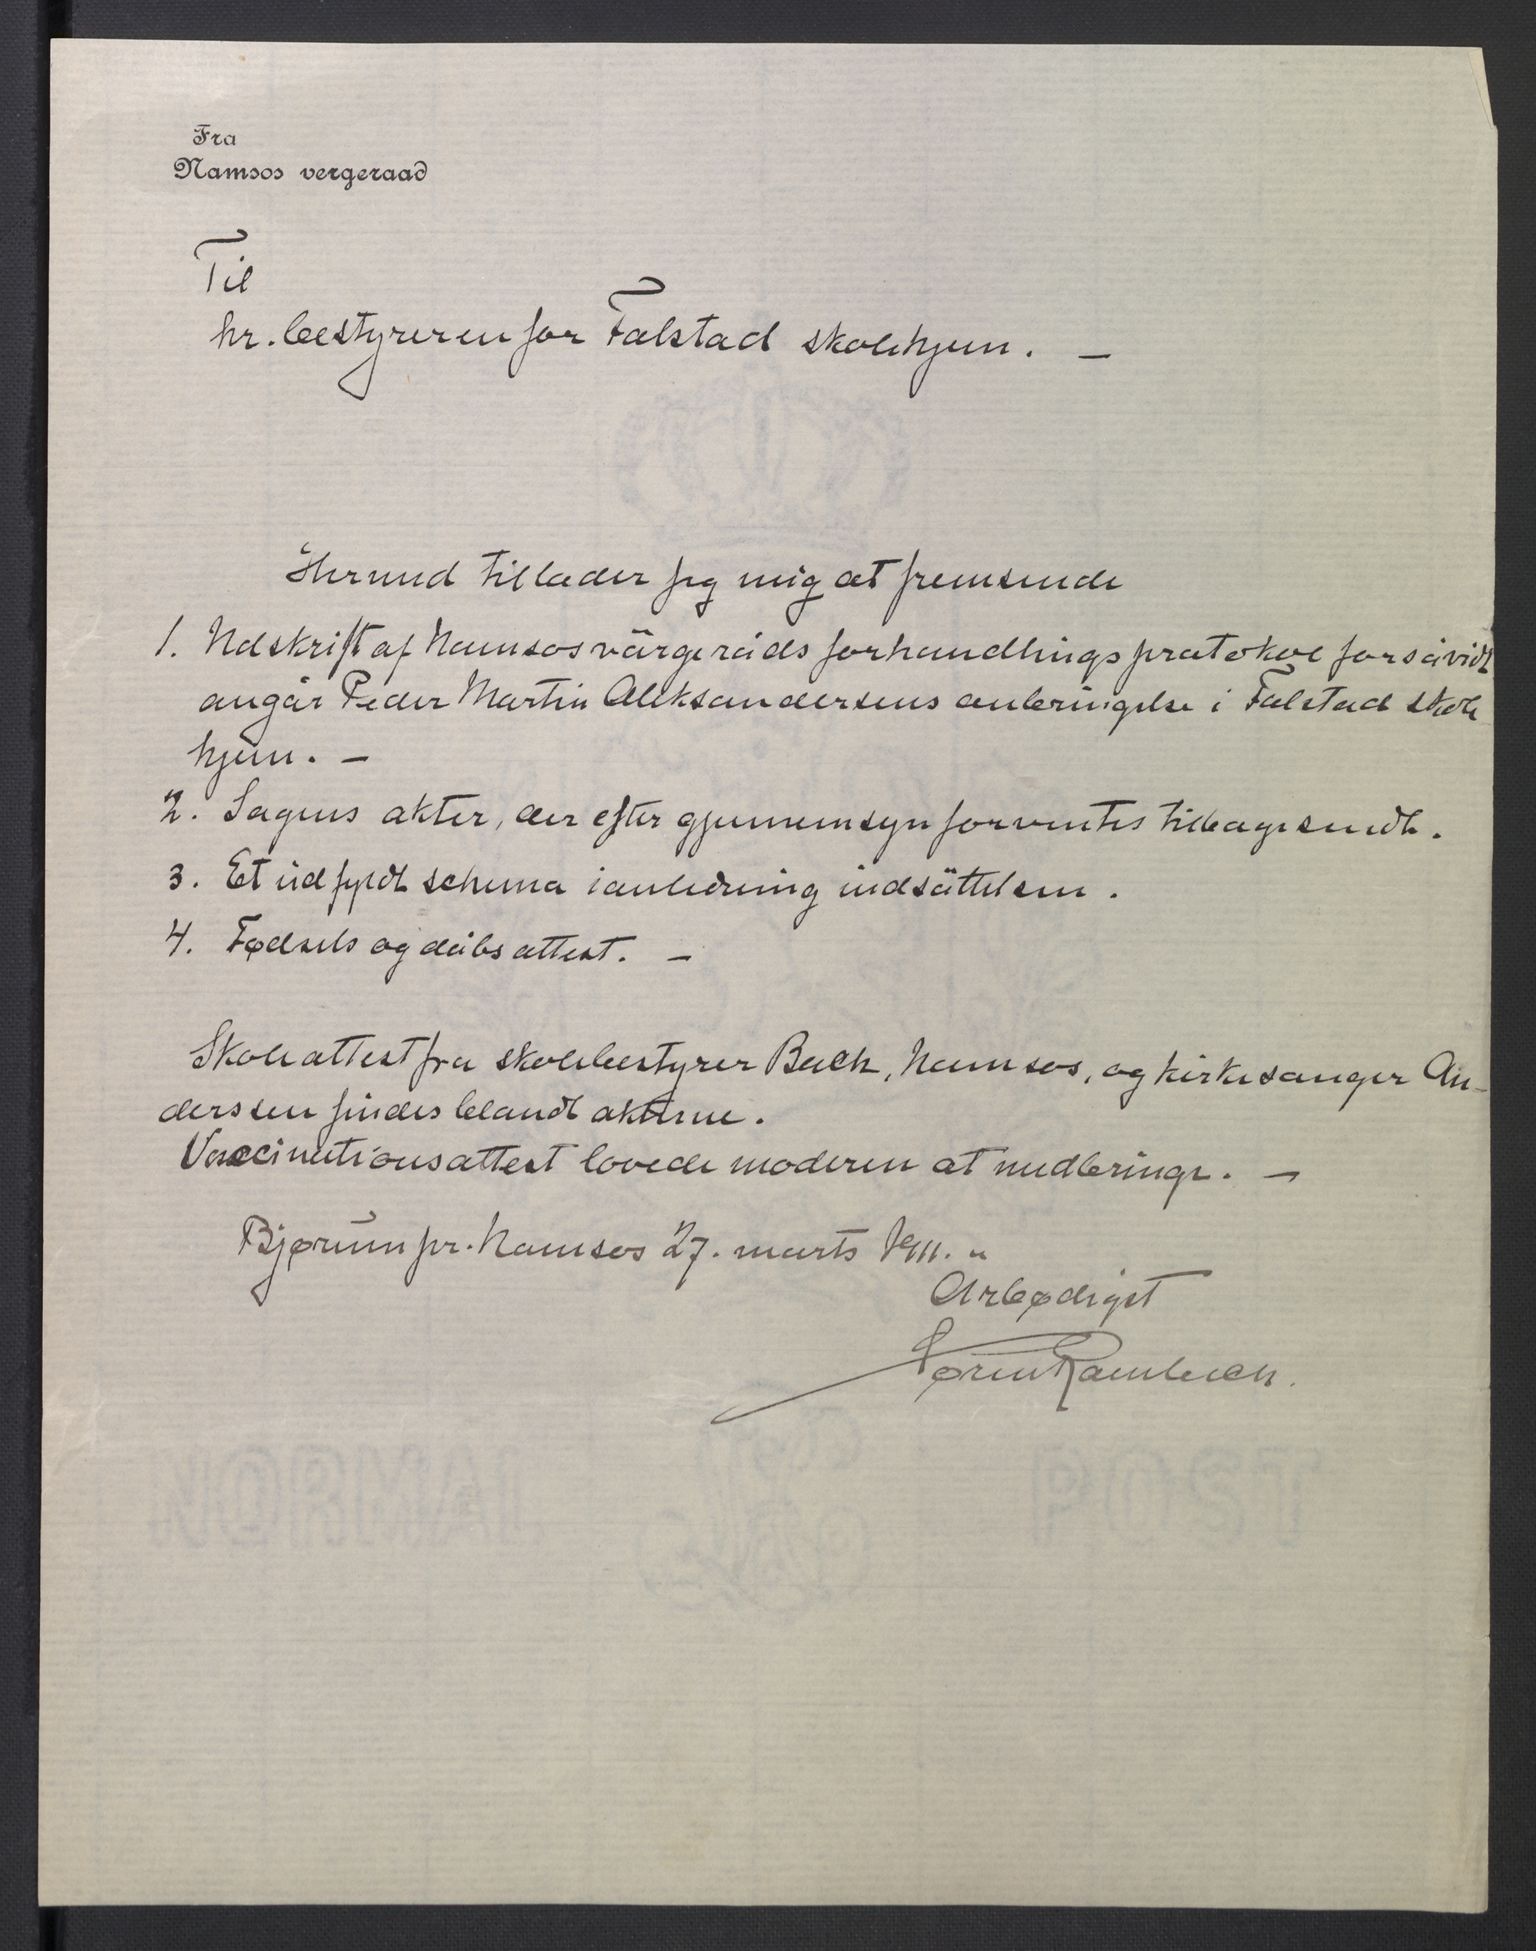 Fra
Namsos vergeraad
Til
hr. bestyreren for Falstad skolehjem. —
Hermed tillader jeg mig at fremsende
1. Udskrift af Namsos värgeråds forhandlingsprotokol forsåvidt
angår Peder Martin Aleksandersens anbringelse i Falstad skole
hjem. —
2. Sagens akter, der efter gjennemsyn forventes tilbagesendt.
3. Et udfyldt schema i anledning indsättelsen.
4. Fødsels og dåbsattest. —
Skoleattest fra skolebestyrer Bach, Namsos, og kirkesanger An-
derssen findes blandt akterne.
Vaccinationsattest lovede moderen at medbringe. —
Bjørum pr. Namsos 27. marts 1911.
Arbødigst
Søren Rambech.
POST
NORMAL